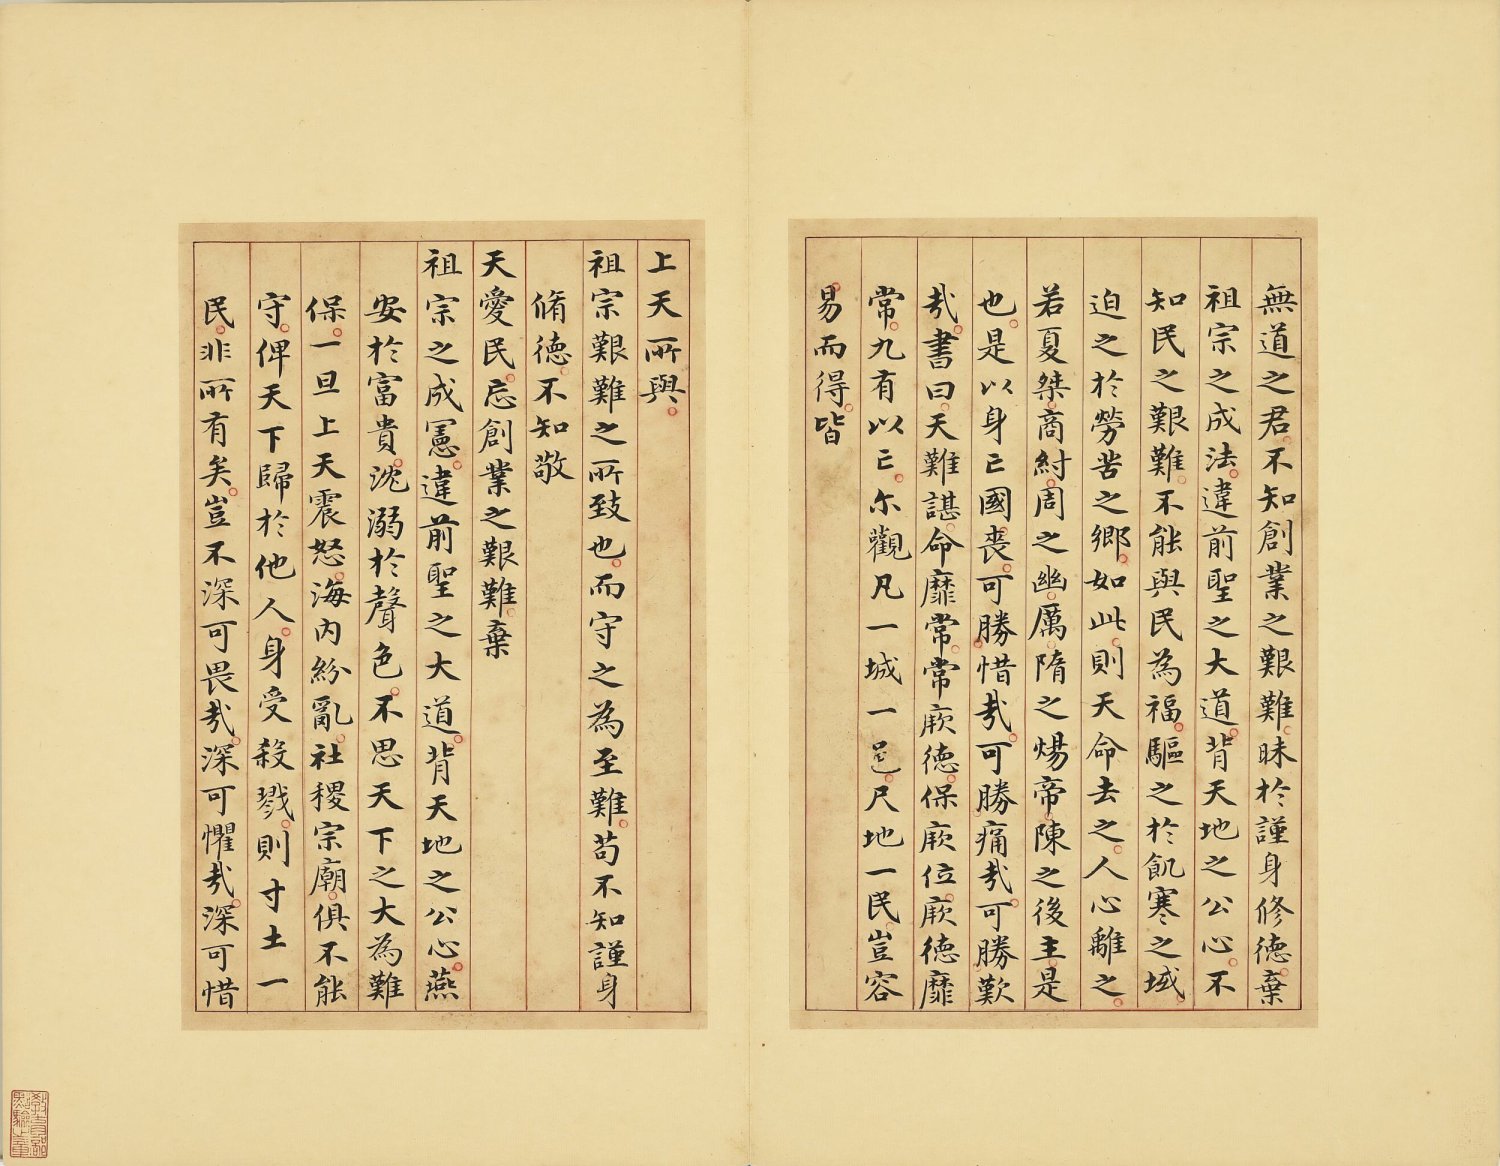 無道之君不知創業之艱難昧於謹身修德棄
祖宗之成法違前聖之大道背天地之公心不
知民之艱難不能與民為福驅之於飢寒之域
迫之於勞苦之鄉如此則天命去之人心離之
若夏桀商紂周之幽厲隋之煬帝陳之後主是
也是以身亡國喪可勝惜哉可勝痛哉可勝歎
哉書曰天難諶命靡常常厥德保厥位厥德靡
常九有以亡尓觀凡一城一邑尺地一民豈容
易而得皆
上天所與
祖宗艱難之所致也而守之為至難苟不知謹身
脩德不知敬
天愛民忘創業之艱難棄
祖宗之成憲違前聖之大道背天地之公心燕
安於富貴沈溺於聲色不思天下之大為難
保一旦上天震怒海內紛亂社稷宗廟俱不能
守俾天下歸於他人身受殺戮則寸土一
民非所有矣豈不深可畏哉深可懼哉深可惜